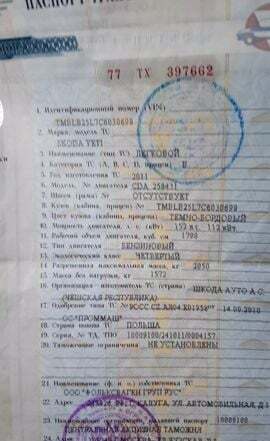 ПАСПОРТ
77 ТХ 397662
1. Идентификационный номер (VIN)
TMBLB25L7C6030698
2. Марка, модель ТС
SKODA YETI
3. Наименование (тип ТС) ЛЕГКОВОЙ
4. Категория ТС (А, В, С, D, прицеп) В
5. Год изготовления ТС 2011
6. Модель, № двигателя CDA 258431
7. Шасси (рама) № ОТСУТСТВУЕТ
8. Кузов (кабина, прицеп) № TMBLB25L7C6030698
9. Цвет кузова (кабины, прицепа) ТЕМНО-БОРДОВЫЙ
10. Мощность двигателя, л. с. (кВт) 152 л. 112 кВт.
11. Рабочий объем двигателя, куб. см 1798
12. Тип двигателя БЕНЗИНОВЫЙ
13. Экологический класс ЧЕТВЕРТЫЙ
14. Разрешенная максимальная масса, кг 2050
15. Масса без нагрузки, кг 1572
16. Организация-изготовитель ТС (страна) ШКОДА АУТО А.С.
(ЧЕШСКАЯ РЕСПУБЛИКА)
17. Одобрение типа ТС № РОСС CZ.АЯ04 14.09.2010
ОС "ПРОММАШ"
18. Страна вывоза ТС ПОЛЬША
19. Серия, № ТД, ТПО 10009100/241011/0004157
20. Таможенные ограничения НЕ УСТАНОВЛЕНЫ
21. Наименование (ф. и. о.) собственника ТС
ООО "ФОЛЬКСВАГЕН ГРУП РУС"
22. Адрес КАЛУГА, УЛ. АВТОМОБИЛЬНАЯ, Д.1
23. Наименование организации, выдавшей паспорт 10009100
ЦЕНТРАЛЬНАЯ АКЦИЗНАЯ ТАМОЖНЯ
24. Адрес